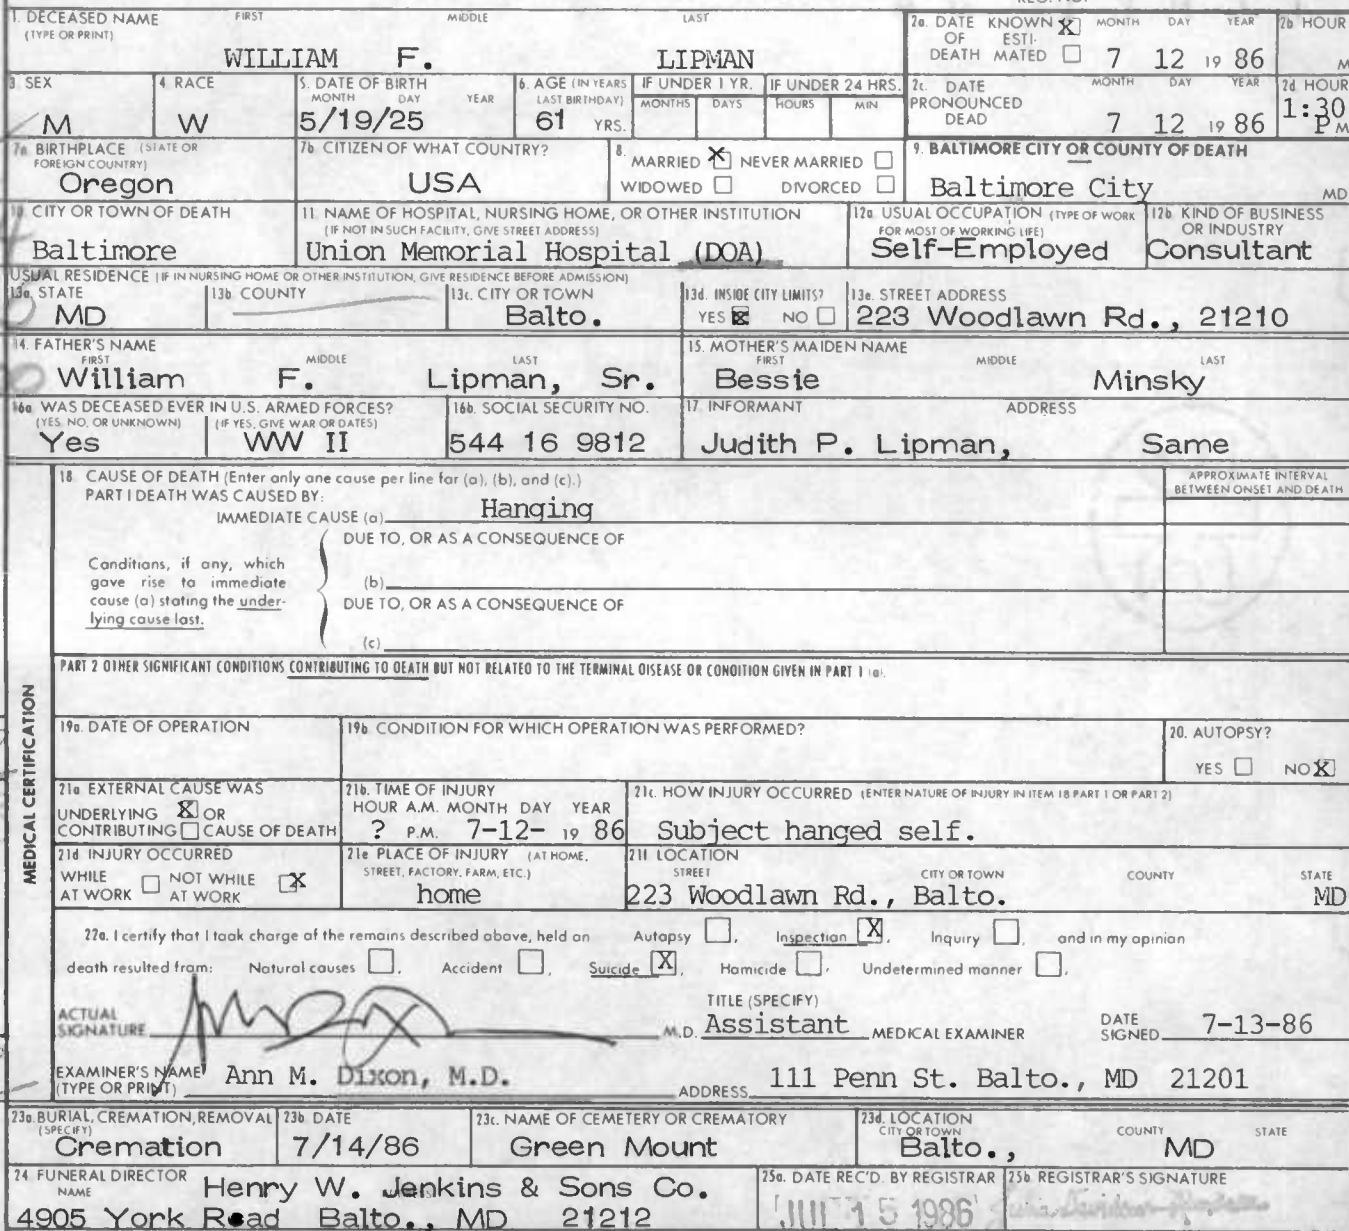 1. DECEASED NAME FIRST MIDDLE LAST
(TYPE OR PRINT)
WILLIAM F. LIPMAN
2a. DATE KNOWN X MONTH DAY YEAR 2b HOUR
OF ESTI-
DEATH MATED 7 12 19 86 M
3 SEX
M
4 RACE
W
5. DATE OF BIRTH
MONTH DAY YEAR
5/19/25
6. AGE (IN YEARS
LAST BIRTHDAY)
61 YRS.
IF UNDER 1 YR. IF UNDER 24 HRS.
MONTHS DAYS HOURS MIN
2c. DATE MONTH DAY YEAR 2d HOUR
PRONOUNCED
DEAD 7 12 19 86 1:30 P M
7a BIRTHPLACE (STATE OR
FOREIGN COUNTRY)
Oregon
7b CITIZEN OF WHAT COUNTRY?
USA
8. MARRIED X NEVER MARRIED
WIDOWED DIVORCED
9. BALTIMORE CITY OR COUNTY OF DEATH
Baltimore City MD
10 CITY OR TOWN OF DEATH
Baltimore
11. NAME OF HOSPITAL, NURSING HOME, OR OTHER INSTITUTION
(IF NOT IN SUCH FACILITY, GIVE STREET ADDRESS)
Union Memorial Hospital (DOA)
12a USUAL OCCUPATION (TYPE OF WORK
FOR MOST OF WORKING LIFE)
Self-Employed
12b KIND OF BUSINESS
OR INDUSTRY
Consultant
USUAL RESIDENCE (IF IN NURSING HOME OR OTHER INSTITUTION, GIVE RESIDENCE BEFORE ADMISSION)
13a. STATE
MD
13b COUNTY
13c. CITY OR TOWN
Balto.
13d. INSIDE CITY LIMITS?
YES X NO
13e. STREET ADDRESS
223 Woodlawn Rd., 21210
14. FATHER'S NAME
FIRST MIDDLE LAST
William F. Lipman, Sr.
15. MOTHER'S MAIDEN NAME
FIRST MIDDLE LAST
Bessie Minsky
16a WAS DECEASED EVER IN U.S. ARMED FORCES?
(YES, NO, OR UNKNOWN) (IF YES, GIVE WAR OR DATES)
Yes WW II
16b. SOCIAL SECURITY NO.
544 16 9812
17. INFORMANT ADDRESS
Judith P. Lipman, Same
18. CAUSE OF DEATH (Enter only one cause per line for (a), (b), and (c).)
PART I DEATH WAS CAUSED BY:
IMMEDIATE CAUSE (a) Hanging
APPROXIMATE INTERVAL
BETWEEN ONSET AND DEATH
DUE TO, OR AS A CONSEQUENCE OF
Conditions, if any, which
gave rise to immediate
cause (a) stating the under-
lying cause last.
(b)
DUE TO, OR AS A CONSEQUENCE OF
(c)
PART 2 OTHER SIGNIFICANT CONDITIONS CONTRIBUTING TO DEATH BUT NOT RELATED TO THE TERMINAL DISEASE OR CONDITION GIVEN IN PART 1 (a).
MEDICAL CERTIFICATION
19a. DATE OF OPERATION
19b CONDITION FOR WHICH OPERATION WAS PERFORMED?
20. AUTOPSY?
YES NO X
21a EXTERNAL CAUSE WAS
UNDERLYING X OR
CONTRIBUTING CAUSE OF DEATH
21b. TIME OF INJURY
HOUR A.M. MONTH DAY YEAR
? P.M. 7-12- 19 86
21c. HOW INJURY OCCURRED (ENTER NATURE OF INJURY IN ITEM 18 PART 1 OR PART 2)
Subject hanged self.
21d INJURY OCCURRED
WHILE NOT WHILE X
AT WORK AT WORK
21e PLACE OF INJURY (AT HOME,
STREET, FACTORY, FARM, ETC.)
home
21f LOCATION
STREET CITY OR TOWN COUNTY STATE
223 Woodlawn Rd., Balto. MD
22a. I certify that I took charge of the remains described above, held an Autopsy , Inspection X , Inquiry , and in my opinion
death resulted from: Natural causes , Accident , Suicide X , Homicide , Undetermined manner .
ACTUAL
SIGNATURE M.D.
TITLE (SPECIFY)
Assistant MEDICAL EXAMINER
DATE
SIGNED 7-13-86
EXAMINER'S NAME
(TYPE OR PRINT) Ann M. Dixon, M.D.
ADDRESS 111 Penn St. Balto., MD 21201
23a. BURIAL, CREMATION, REMOVAL
(SPECIFY)
Cremation
23b DATE
7/14/86
23c. NAME OF CEMETERY OR CREMATORY
Green Mount
23d. LOCATION
CITY OR TOWN COUNTY STATE
Balto., MD
24 FUNERAL DIRECTOR
NAME
Henry W. Jenkins & Sons Co.
4905 York Road Balto., MD 21212
25a. DATE REC'D. BY REGISTRAR
15 1986
25b. REGISTRAR'S SIGNATURE